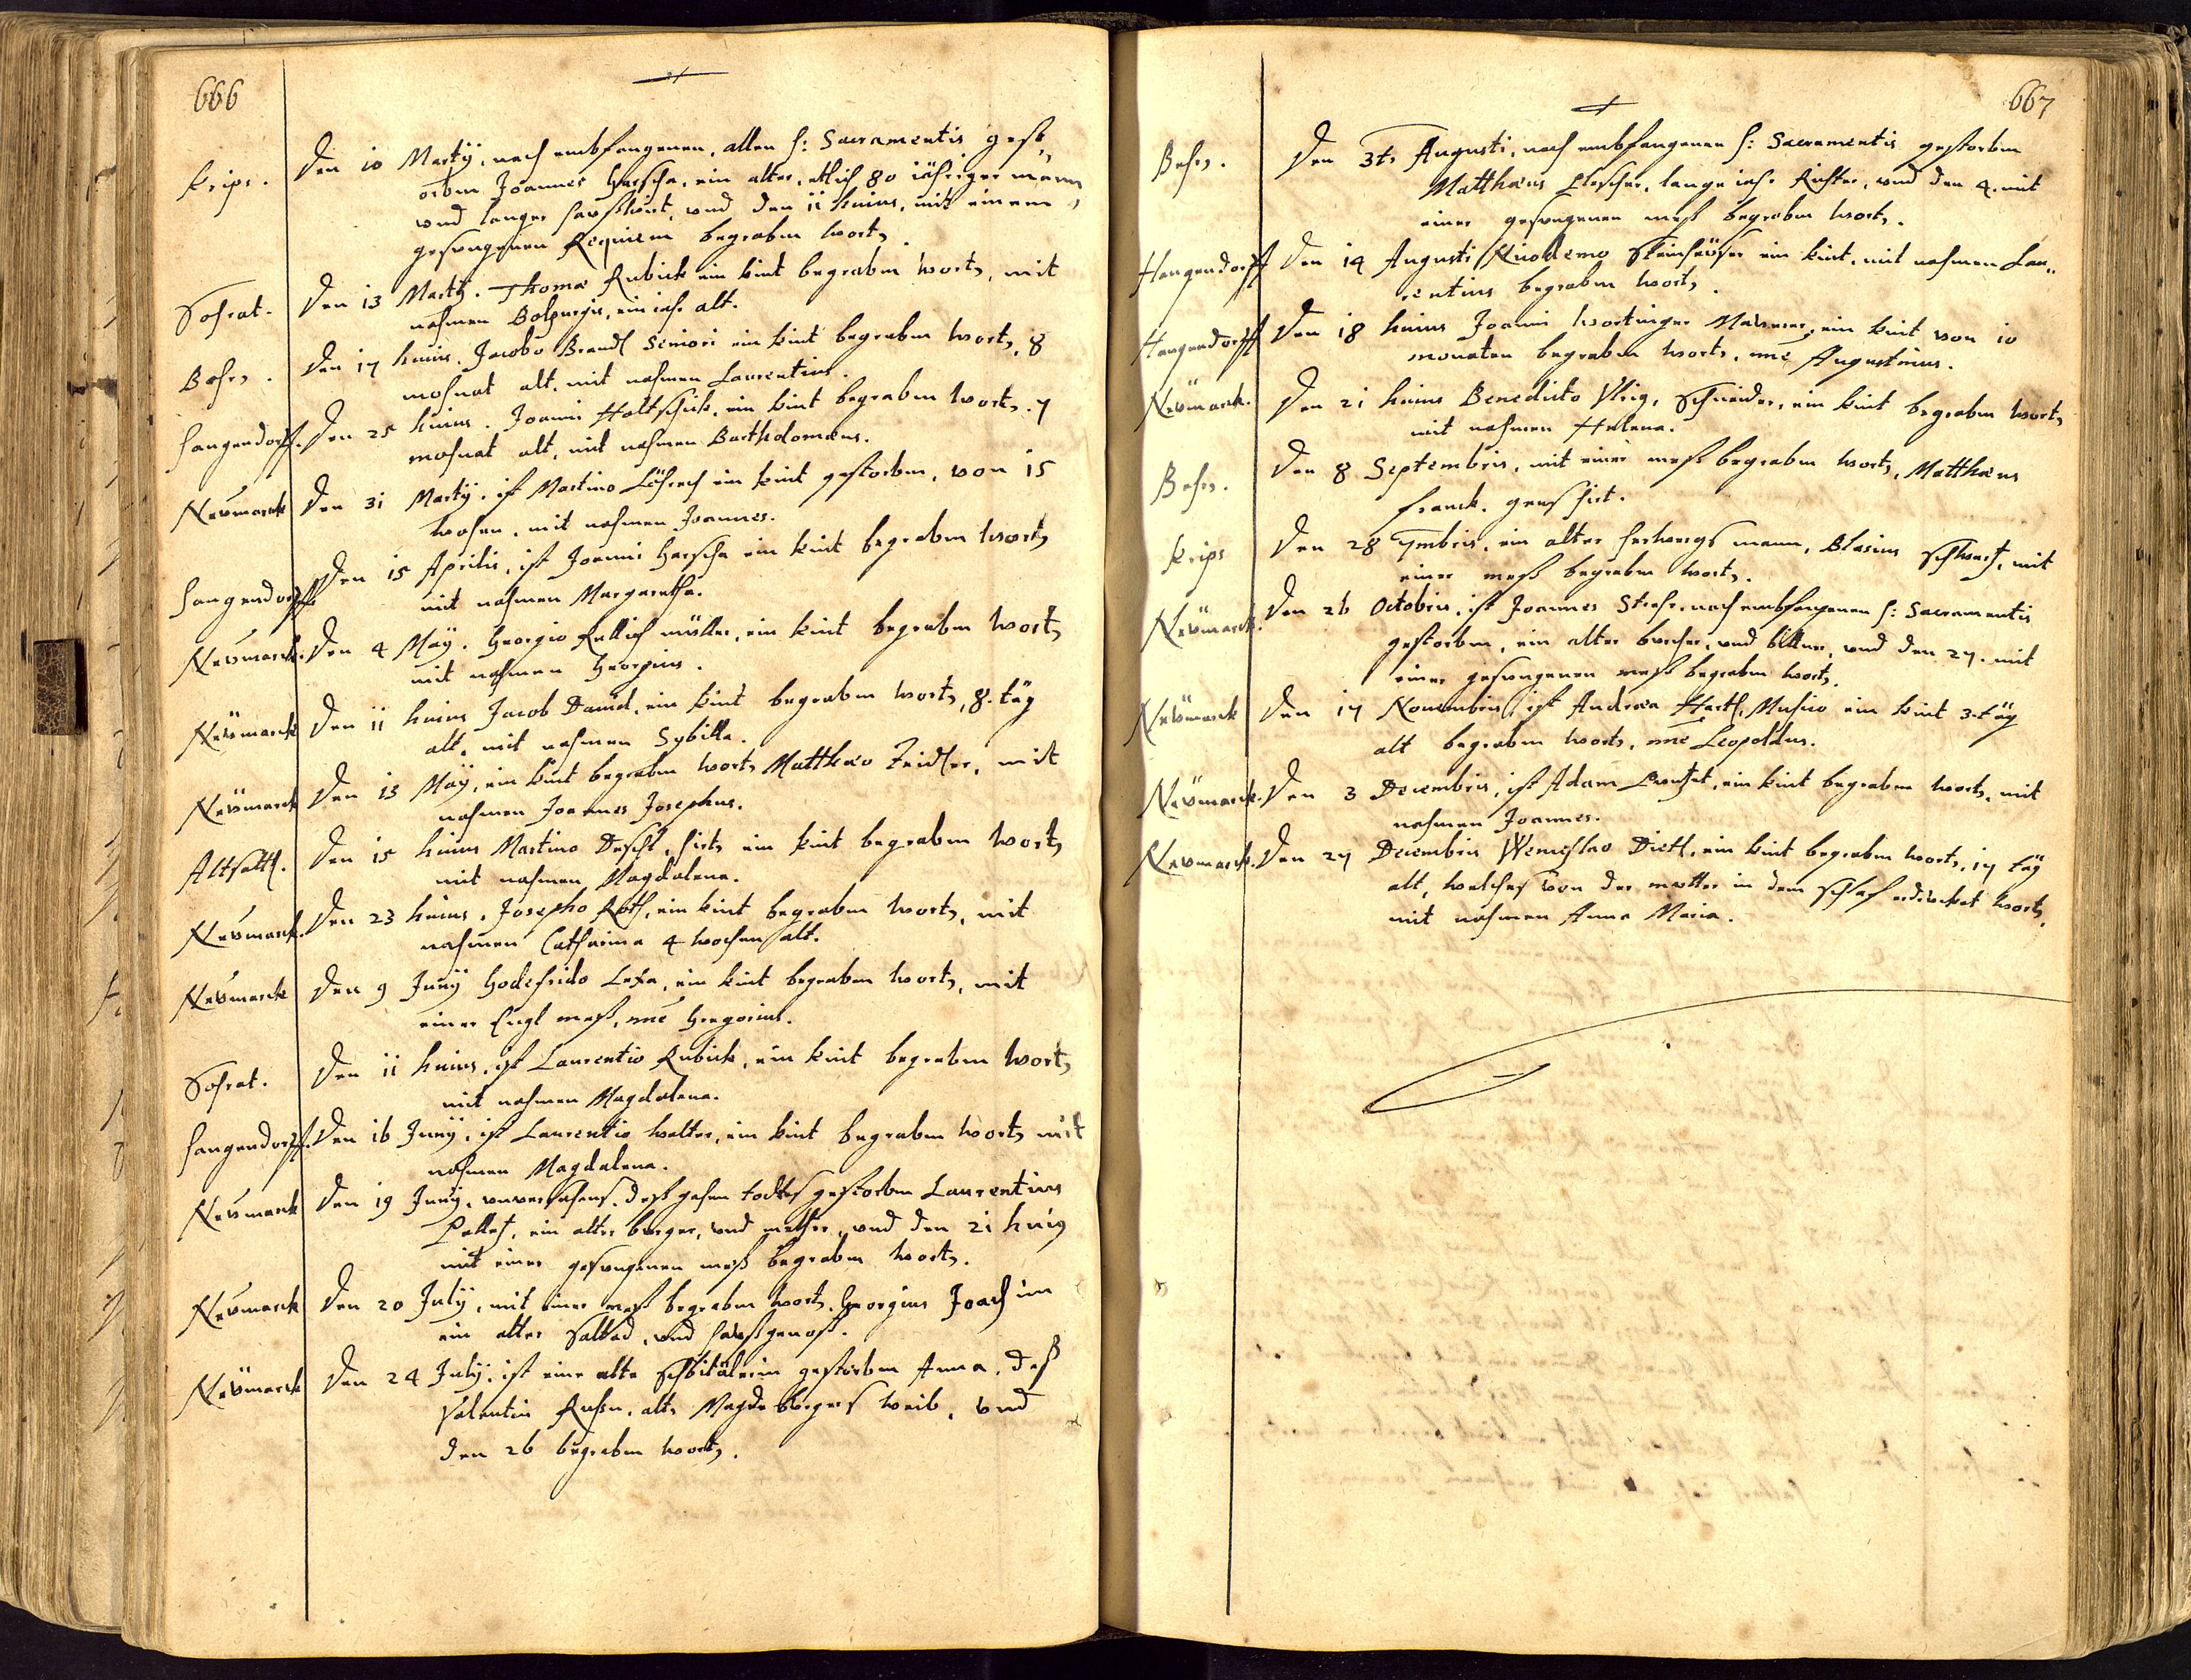 666
Krips. Den 10 Martÿ, nach embfangenen, allen h: Sacramentis gest,,
orben Joannes Harscha, ein alter, etlich 80 iähriger mann
und langer haußwirt, und den 11 huius, mit einem
gesungenen Requiem begraben wort,
Sohrat. Den 13 Martÿ. Thomæ Rubick ein kint begraben wort, mit
nahmen Bolpurgis, ein iahr alt.
Bohr,. Den 17 huius. Jacobo Brandl Seniori ein kint begraben wort, 8
mohnat alt, mit nahmen Laurentius.
Hangendorff. Den 25 huius. Joanni Holtschick, ein kint begraben wort, 7
mohnat alt, mit nahmen Bartholomæus.
Neümarck Den 31 Martÿ, ist Martino ein kint gestorben, von 15
wohen, mit nahmen Joannes.
Hangendorff. Den 15 Aprilis, ist Joanni Harscha ein kint begraben wort,
mit nahmen Margaretha.
Neumarck. Den 4 Maÿ. Georgio müller, ein kint begraben wort,
mit nahmen Georgius.
Neümarck Den 11 huius Jacob David, ein kint begraben wort, 8. täg
alt, mit nahmen Sybilla.
Neümarck Den 13 Maÿ, ein kint begraben wort, Matthæo Zeidler, mit
nahmen Joannes Josephus.
Altsattl. Den 15 huius Martino Deschl, hirt, ein kint begraben wort,
mit nahmen Magdalena.
Neumarck. Den 23 huius. Josepho Roth, ein kint begraben wort, mit
nahmen Catharina 4 wochen alt.
Neumarck Den 9 Junÿ Godefrido Lexa, ein kint begraben wort, mit
einer Engl meß, nne Gregorius.
Sohrat. Den 11 huius, ist Laurentio Rubick, ein kint begraben wort,
mit nahmen Magdalena.
Hangendorff. Den 16 Junÿ, ist Laurentio walter, ein kint begraben wort, mit
nahmen Magdalena.
Neumarck Den 19 Junÿ, unversehens, todtes gestorben Laurentius
ein alter burger, und und den 21 huius
mit einer gesungenen meß begraben wort,.
Neümarck Den 20 Julÿ, mit einer meß begraben wort, Georgius Joachim
ein alter Saldad, und haußgenoß.
Neümarck Den 24 Julÿ, ist eine alte Schbitälerin gestorben Anna, deß
Valentin alt, burgers weib, und
den 26 begraben wort,.
667
Bohr,. Den 3t, Augusti, nach embfangenen h: Sacramentis gestorben
Matthæus lange iahr Richter, und den 4. mit
einer gesungenen meß begraben wort,.
Hangendorff Den 14 Augusti Nicodemo Steinheüser ein kint, mit nahmen Lau,,
rentius begraben wort,.
Hangendorff Den 18 huius Joanni Wortinger Maurer, ein kint von 10
monaten begraben wort, nne Augustinus.
Neümarck. Den 21 huius Benedicto Ulrig, Schneider, ein kint begraben wort,
mit nahmen Helena.
Bohr,. Den 8 Septembris, mit einer meß begraben wort, Matthæus
Franck, genshirt.
Krips Den 28 7mbris, ein alter herbergs mann, Blasius mit
einer meß begraben wort,.
Neümarck. Den 26 Octobris, ist Joannes nach embfangenen h: Sacramentis
gestorben, ein alter burcher, und bittner, und den 27. mit
einer gesungenen meß begraben wort,
Neümarck Den 17 Novembris, ist Andræa Hartl, Musico ein kint 3. täg
alt begraben wort, nne Leopoldus.
Neümarck. Den 3 Decembris, ist Adam ein kint begraben wort, mit
nahmen Joannes.
Neumarck. Den 27 Decembris Wenceslao Dietl, ein kint begraben wort, 17 täg
alt, welches von der mutter in dem schlaf erdrucket wort,
mit nahmen Anna Maria.